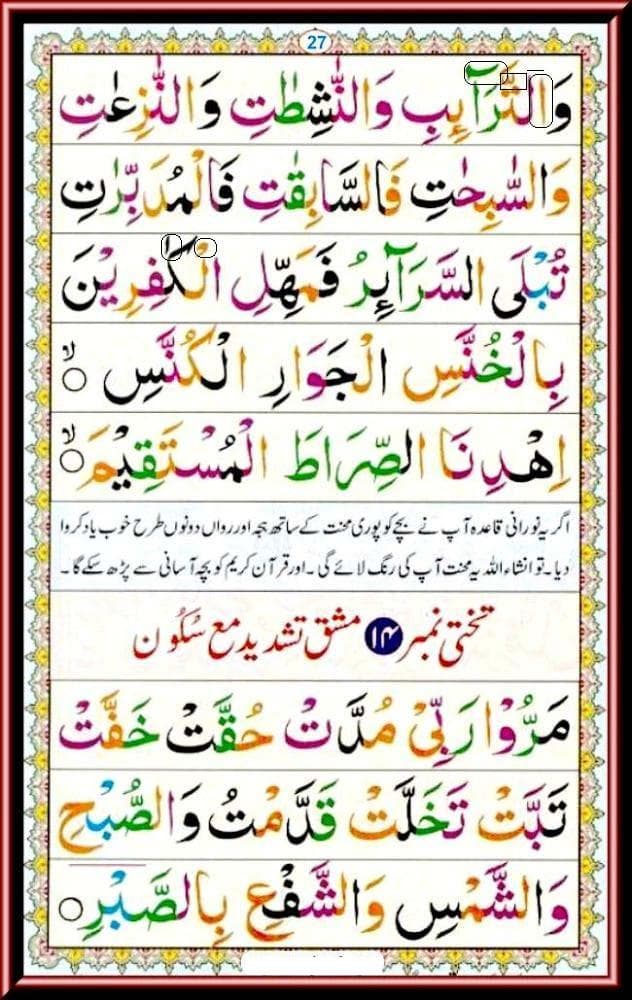 27
وَالتَّرَآئِبِ وَالنّٰشِطٰتِ وَالنّٰزِعٰتِ
وَالسّٰبِحٰتِ فَالسَّابِقٰتِ فَالْمُدَبِّرٰتِ
تُبْلَى السَّرَآئِرُ فَمَهِّلِ الْكٰفِرِيْنَ
بِالْخُنَّسِ الْجَوَارِ الْكُنَّسِ ۙ○
اِهْدِنَا الصِّرَاطَ الْمُسْتَقِيْمَ ۙ○
اگر یہ نورانی قاعدہ آپ نے بچے کو پوری محنت کے ساتھ ہجہ اور رواں دونوں طرح خوب یاد کروا
دیا۔ تو انشاء اللہ یہ محنت آپ کی رنگ لائے گی۔ اور قرآن کریم کو بچہ آسانی سے پڑھ سکے گا۔
تختی نمبر ۱۴ مشق تشدید مع سُکُون
مَرُّوْا رَبِّىْ مُدَّتْ حُقَّتْ خَفَّتْ
تَبَّتْ تَخَلَّتْ قَدَّمْتُ وَالصُّبْحِ
وَالشَّمْسِ وَالشَّفْعِ بِالصَّبْرِ ○